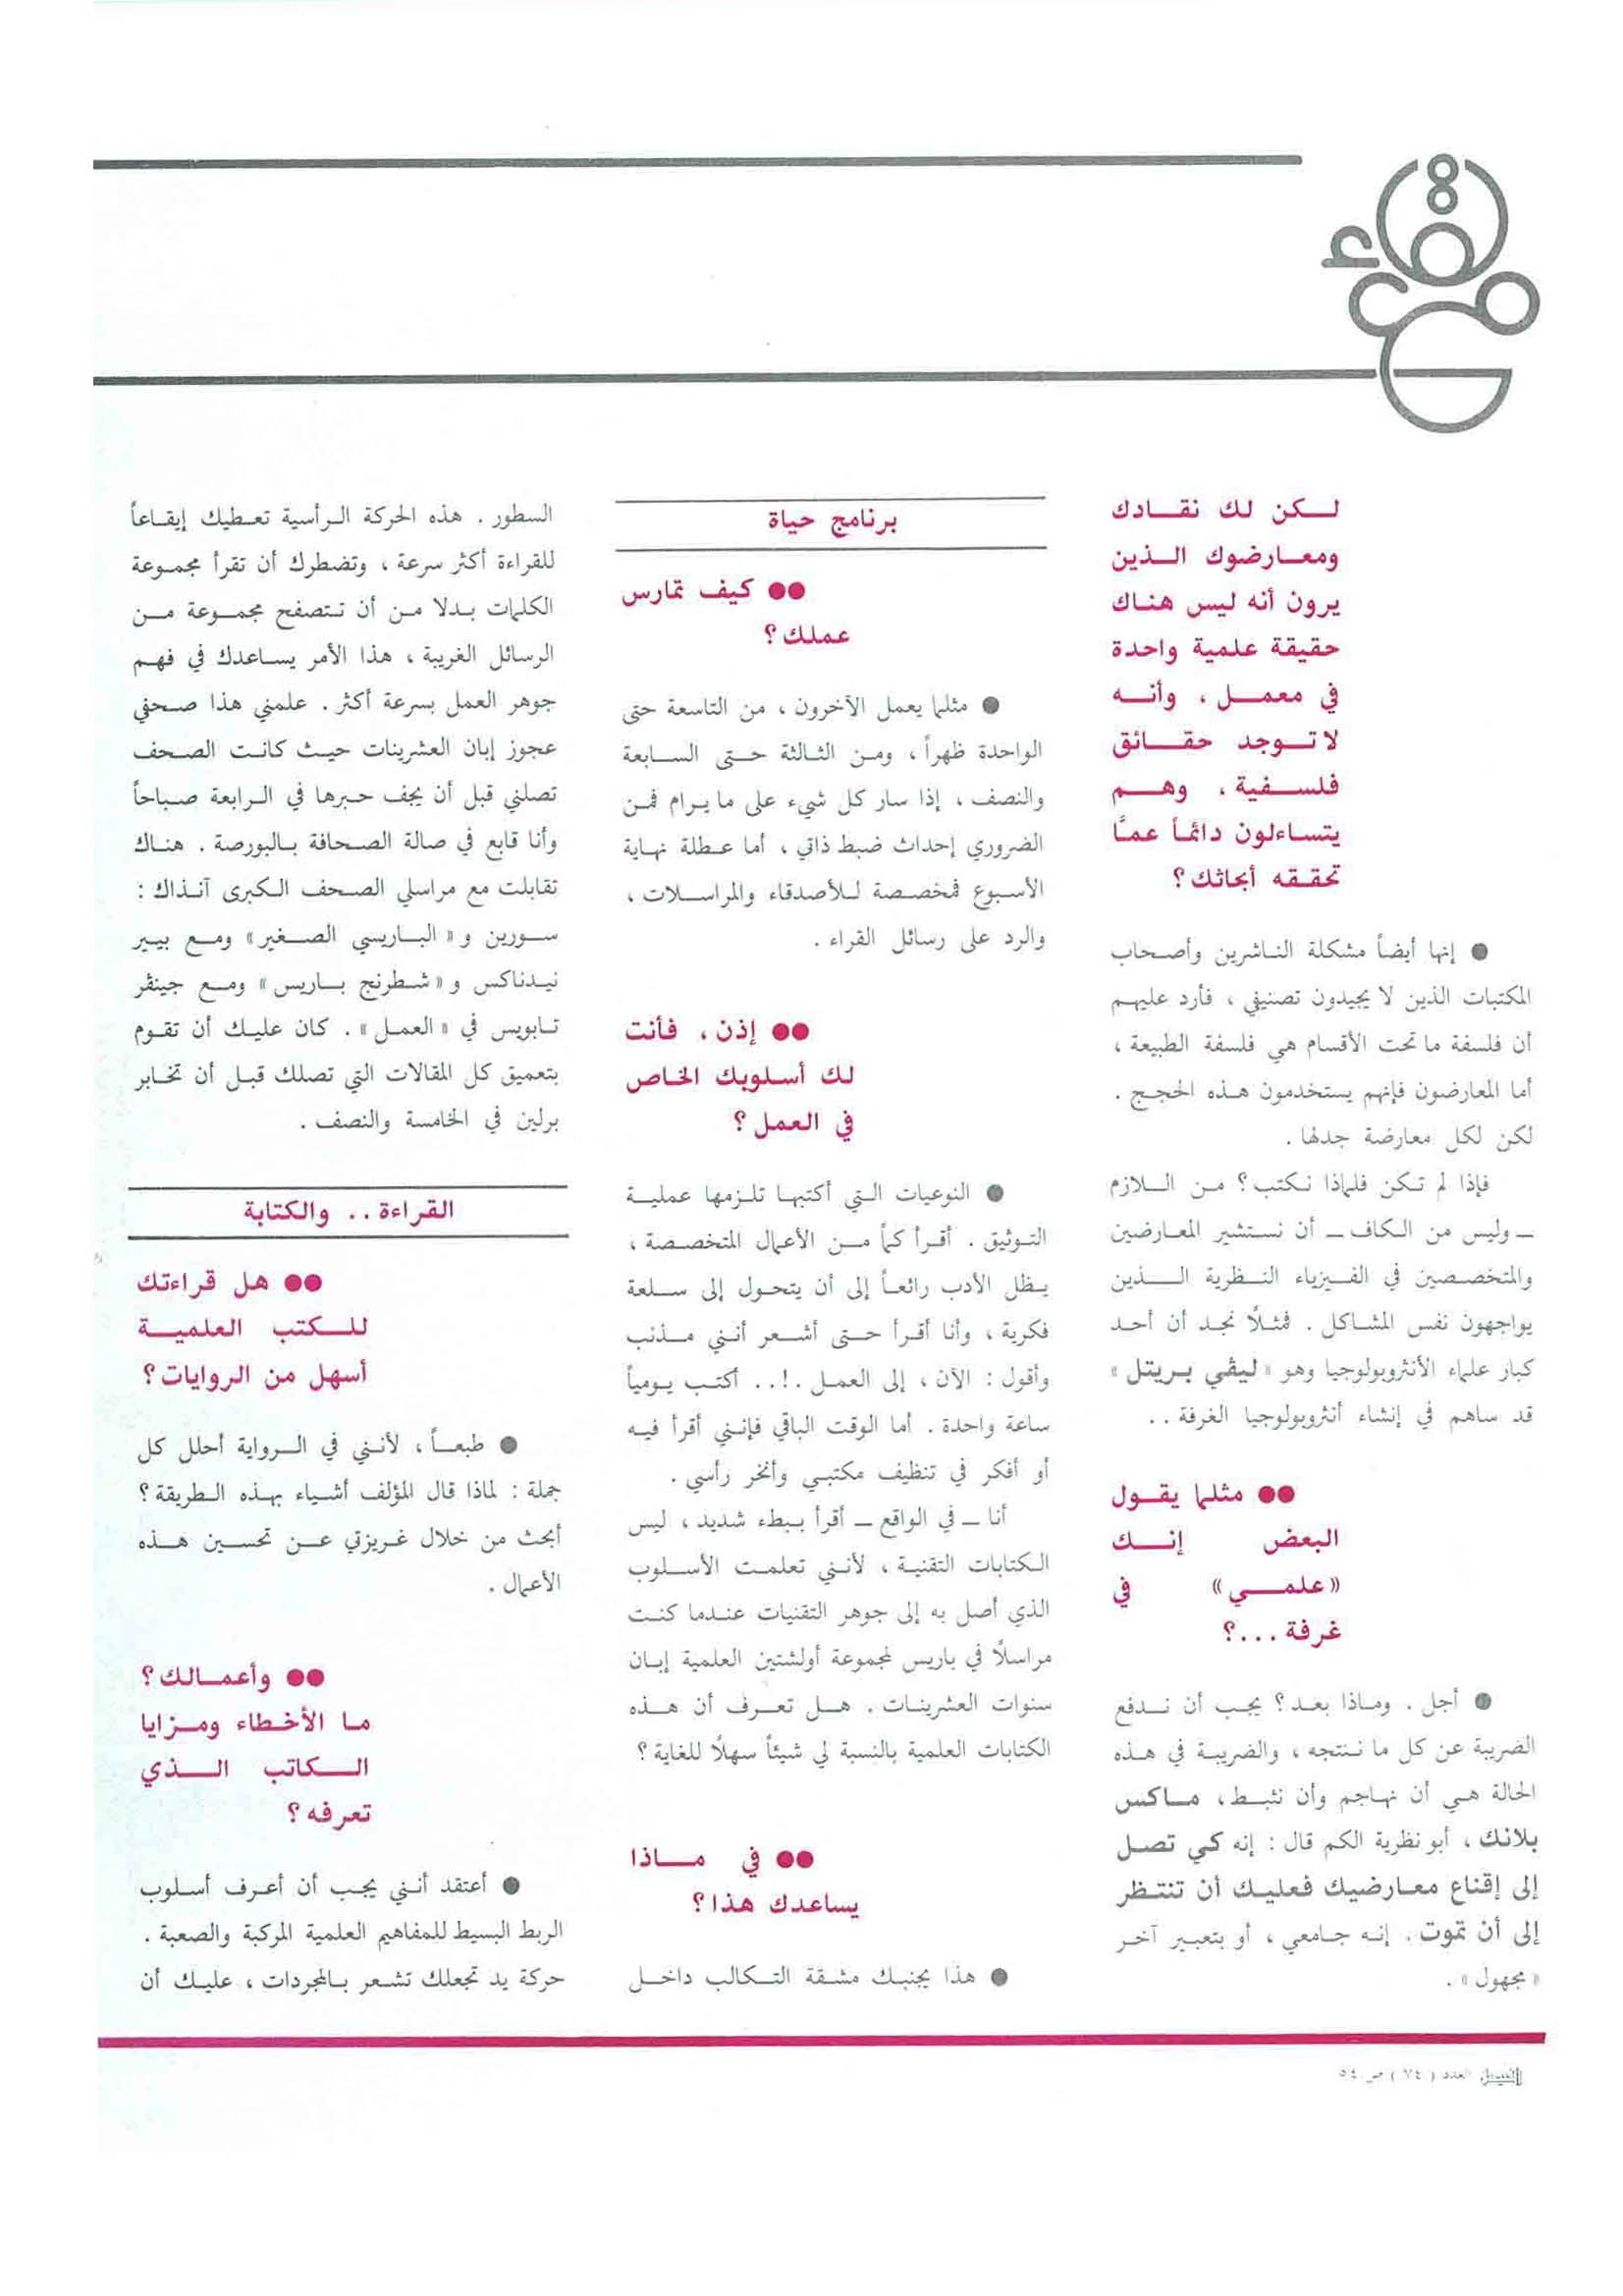 لـكن لك نقـادك
ومعـارضوك الـذين
يرون أنه ليس هنـاك
حقيقة علمية واحدة
في معمـل ، وأنــه
لا تـوجد حقـائق
فلسـفية ، وهــم
يتسـاءلون دائمـاً عمـّا
تحقـقه أبحاثك ؟
● إنها أيضاً مشكلة الناشرين وأصحاب
المكتبات الذين لا يجيدون تصنيفي ، فأرد عليهم
أن فلسفة ما تحت الأقسام هي فلسفة الطبيعة ،
أما المعارضون فإنهم يستخدمون هذه الحجج .
لكن لكل معارضة جدلها .
فإذا لم تكن فلماذا نكتب ؟ من الـلازم
ــ وليس من الكاف ــ أن نستشير المعارضين
والمتخصصين في الفيزياء النظرية الـذين
يواجهون نفس المشاكل . فمثلاً نجد أن أحد
كبار علماء الأنثروبولوجيا وهو « ليڤي بريتل »
قد ساهم في إنشاء أنثروبولوجيا الغرفة ..
●● مثلما يقـول
البعض إنــك
« علمـي » في
غرفة ...؟
● أجل . وماذا بعد ؟ يجب أن ندفع
الضريبة عن كل ما ننتجه ، والضريبة في هذه
الحالة هي أن نهاجم وأن نثبط ، ماكس
بلانك ، أبو نظرية الكم قال : إنه كي تصل
إلى إقناع معارضيك فعليك أن تنتظر
إلى أن تموت . إنه جامعي ، أو بتعبير آخر
« مجهول » .
برنامج حياة
●● كيف تمارس
عملك ؟
● مثلما يعمل الآخرون ، من التاسعة حتى
الواحدة ظهراً ، ومن الثالثة حتى السابعة
والنصف ، إذا سار كل شيء على ما يرام فمن
الضروري إحداث ضبط ذاتي ، أما عطلة نهاية
الأسبوع فمخصصة للأصدقاء والمراسلات ،
والرد على رسائل القراء .
●● إذن ، فأنت
لك أسلوبك الخاص
في العمل ؟
● النوعيات التي أكتبها تلزمها عملية
التوثيق . أقرأ كماً من الأعمال المتخصصة ،
يظل الأدب رائعاً إلى أن يتحول إلى سلعة
فكرية ، وأنا أقرأ حتى أشعر أنني مذنب
وأقول : الآن ، إلى العمل .!.. أكتب يومياً
ساعة واحدة . أما الوقت الباقي فإنني أقرأ فيه
أو أفكر في تنظيف مكتبي وأنخر رأسي .
أنا ــ في الواقع ــ أقرأ ببطء شديد ، ليس
الكتابات التقنية ، لأنني تعلمت الأسلوب
الذي أصل به إلى جوهر التقنيات عندما كنت
مراسلاً في باريس لمجموعة أولشتين العلمية إبان
سنوات العشرينات . هل تعرف أن هذه
الكتابات العلمية بالنسبة لي شيئاً سهلاً للغاية ؟
●● في مـاذا
يساعدك هذا ؟
● هذا يجنبك مشقة التكالب داخل
السطور . هذه الحركة الرأسية تعطيك إيقاعاً
للقراءة أكثر سرعة ، وتضطرك أن تقرأ مجموعة
الكلمات بدلا من أن تتصفح مجموعة من
الرسائل الغريبة ، هذا الأمر يساعدك في فهم
جوهر العمل بسرعة أكثر . علمني هذا صحفي
عجوز إبان العشرينات حيث كانت الصحف
تصلني قبل أن يجف حبرها في الرابعة صباحاً
وأنا قابع في صالة الصحافة بالبورصة . هناك
تقابلت مع مراسلي الصحف الكبرى آنذاك :
سورين و « الباريسي الصغير » ومع بيير
نيدناكس و « شطرنج باريس » ومع جينڤر
تابويس في « العمل » . كان عليك أن تقوم
بتعميق كل المقالات التي تصلك قبل أن تخابر
برلين في الخامسة والنصف .
القراءة .. والكتابة
●● هل قراءتك
للـكتب العلميـة
أسهل من الروايات ؟
● طبعاً ، لأنني في الرواية أحلل كل
جملة : لماذا قال المؤلف أشياء بهذه الطريقة ؟
أبحث من خلال غريزتي عن تحسين هذه
الأعمال .
●● وأعمـالك ؟
ما الأخطاء ومزايا
الـكاتب الـذي
تعرفه ؟
● أعتقد أنني يجب أن أعرف أسلوب
الربط البسيط للمفاهيم العلمية المركبة والصعبة .
حركة يد تجعلك تشعر بالمجردات ، عليك أن
الفيصل العدد ( ٧٤ ) ص ٥٤